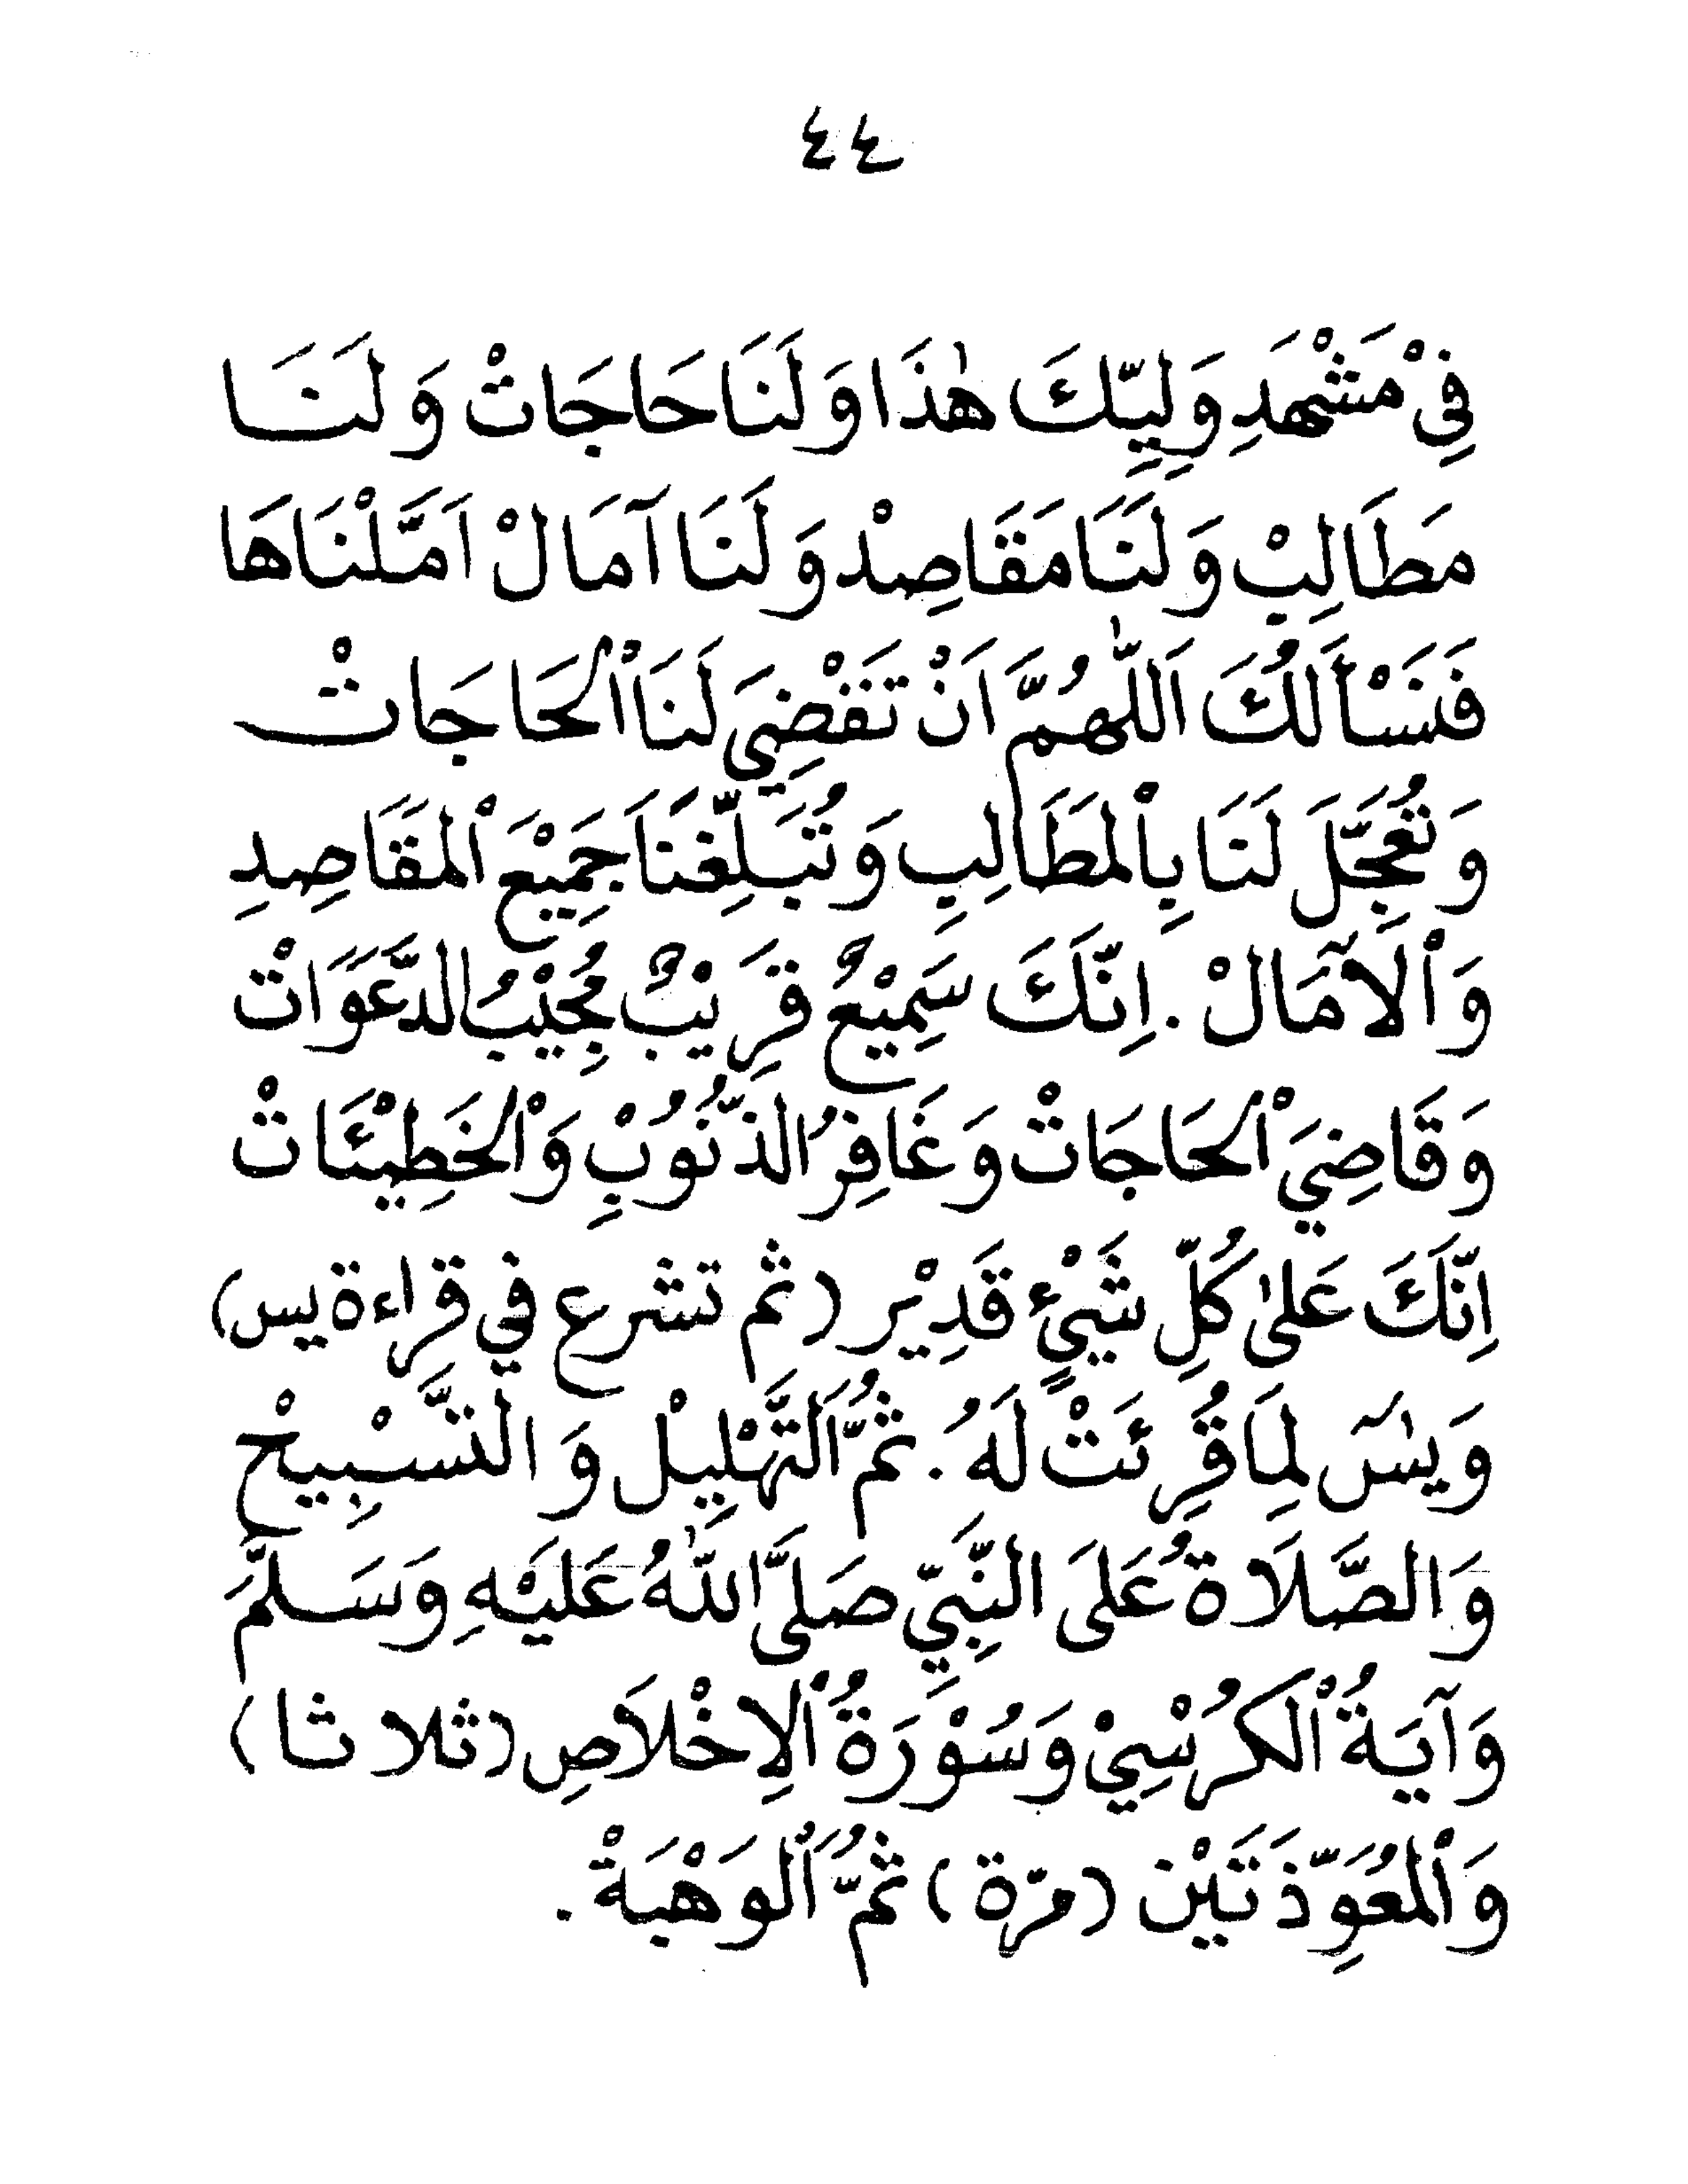 ٤٤
فِيْ مَشْهَدِ وَلِيِّكَ هٰذَا وَلَنَا حَاجَاتْ وَلَنَا
مَطَالِبْ وَلَنَا مَقَاصِدْ وَلَنَا آمَالْ اَمَّلْنَاهَا
فَنَسْأَلُكَ اَللّٰهُمَّ اَنْ تَقْضِيَ لَنَا الْحَاجَاتْ
وَتُعَجِّلَ لَنَا بِالْمَطَالِبِ وَتُبَلِّغَنَا جَمِيْعَ الْمَقَاصِدِ
وَالْآمَالْ. اِنَّكَ سَمِيْعٌ قَرِيْبٌ مُجِيْبُ الدَّعَوَاتْ
وَقَاضِيَ الْحَاجَاتْ وَغَافِرُ الذُّنُوْبِ وَالْخَطِيْئَاتْ
اِنَّكَ عَلىٰ كُلِّ شَيْءٍ قَدِيْر (ثم تشرع في قراءة يس)
وَيٰسٓ لِمَا قُرِئَتْ لَهُ. ثُمَّ التَّهْلِيْل وَالتَّسْبِيْح
وَالصَّلَاةُ عَلَى النَّبِيِّ صَلَّى اللّٰهُ عَلَيْهِ وَسَلَّمَ
وَآيَةُ الْكُرْسِيْ وَسُوْرَةُ الْاِخْلَاصِ (ثلاثا)
وَالْمُعَوِّذَتَيْن (مرّة) ثُمَّ الْوَهْبَةْ.